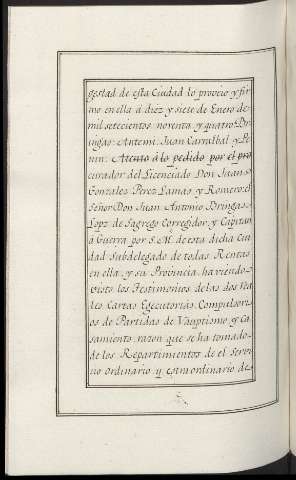 gestad de esta Ciudad lo proveio y fir
mo en ella á diez y siete de Enero de
mil setecientos noventa y quatro: Brin
ngas: Antemi. Juan Carralbal y Pe
nin. Atento á lo pedido por el pro
curador del Licenciado Don Juan
Gonzalez Perez Lamas y Romero, el
Señor Don Juan Antonio Bringas
Lopz de Sagrego Corregidor y Capitan
á Guerra por S. M. de esta dicha Ciu
dad Subdelegado de todas Rentas
en ella y su Provincia, haviendo
visto los Testimonios de las dos rea
les Cartas Egecutorias, Compulsori
os de Partidas de Vauptismo y Ca
samiento, razon que se ha tomado
de los Repartimientos de el Servi
cio ordinario y extraordinario de